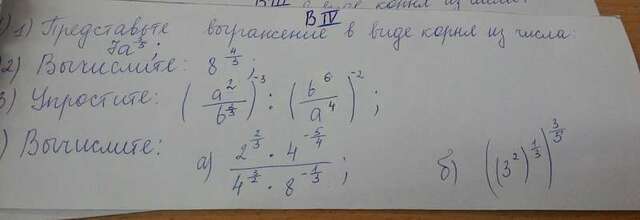 В IV
1) Представьте выражение в виде корня из числа:
7a^(3/5);
2) Вычислите: 8^(4/3);
3) Упростите: (a^2/b^3)^(-3) : (b^6/a^4)^(-2);
) Вычислите: а) (2^(2/3) · 4^(-5/4))/(4^(3/2) · 8^(-1/3)); б) ((3^2)^(1/3))^(3/5)